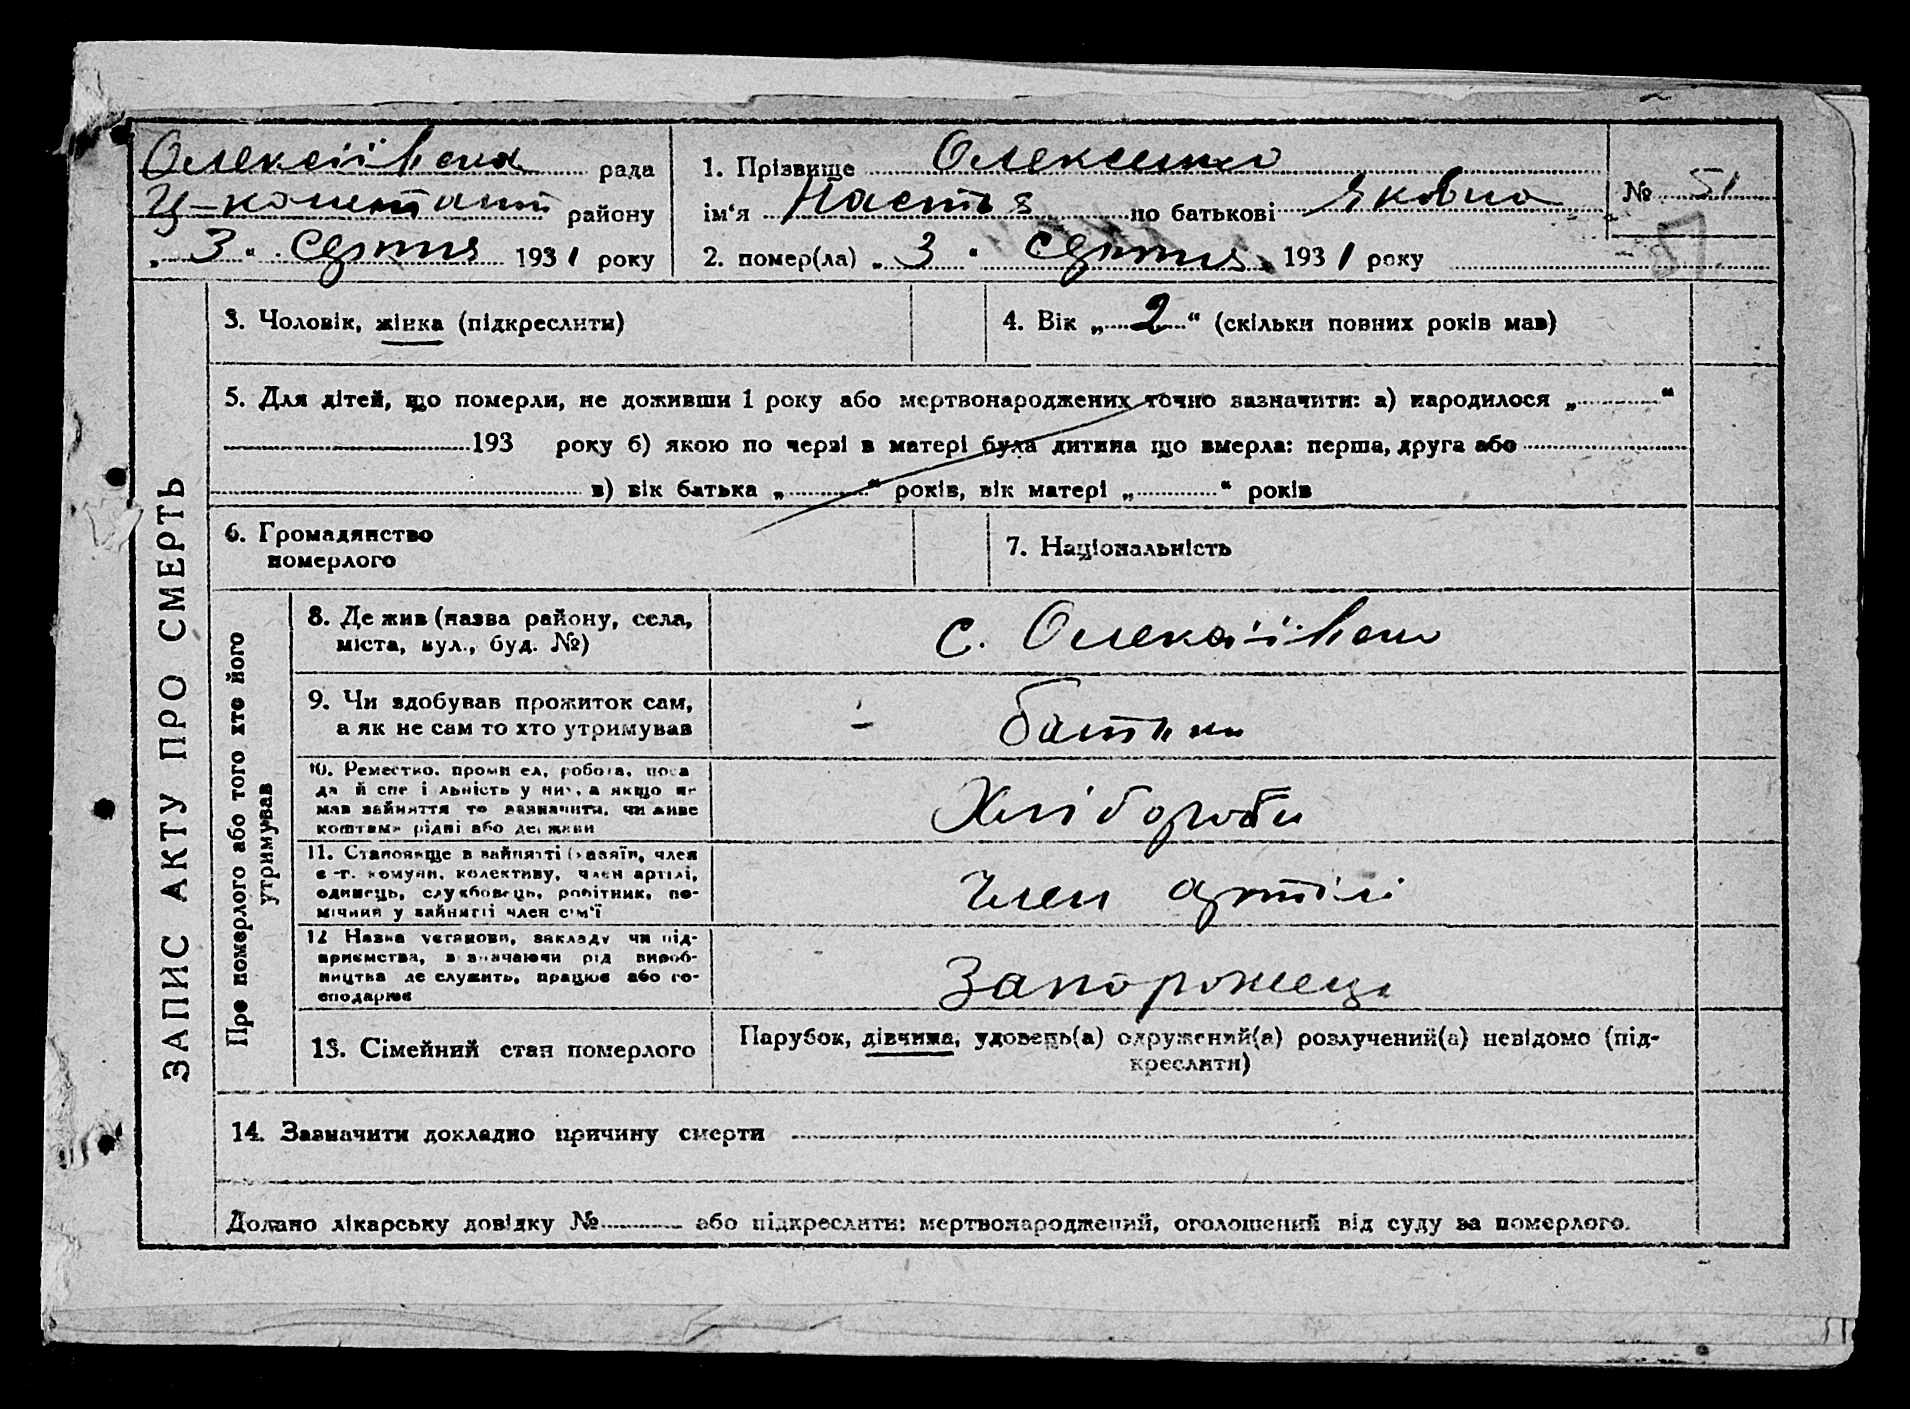 Олексіївська рада
Ц-констант району
„ 3 “ серпня 1931 року
1. Прізвище Олексенко
ім‘я Настя по батькові Яковна
2. помер(ла) „ 3 “ серпня 1931 року
№ 51
ЗАПИС АКТУ ПРО СМЕРТЬ
3. Чоловік, жінка (підкреслити)
4. Вік „ 2 “ (скільки повних років мав)
5. Для дітей, що померли, не доживши 1 року або мертвонароджених точно зазначити: а) народилося „ “
193 року б) якою по черзі в матері була дитина що вмерла: перша, друга або
в) вік батька „ “ років, вік матері „ “ років
6. Громадянство
померлого
7. Національність
Про померлого або того хто його
утримував
8. Де жив (назва району, села,
міста, вул., буд. №)
с. Олексіївка
9. Чи здобував прожиток сам,
а як не сам то хто утримував
- батьки
10. Ремество, промисел, робота, поса
да й спеціальність у них, а якщо не
мав зайняття то зазначити, чи живе
коштами рідні або держави
Хлібороби
11. Становище в зайнятті (хазяїн, член
с.-г. комуни, колективу, член артілі,
одинець, службовець, робітник, по-
мічний у зайнятті член сім‘ї
Член артілі
12 Назва установи, закладу чи під-
приємства, визначаючи рід вироб-
ництва де служить, працює або го-
сподарює
Запорожець
13. Сімейний стан померлого
Парубок, дівчина, удовець(а) одружений(а) розлучений(а) невідомо (під-
креслити)
14. Зазначити докладно причину смерти
Додано лікарську довідку № або підкреслити: мертвонароджений, оголошений від суду за померлого.